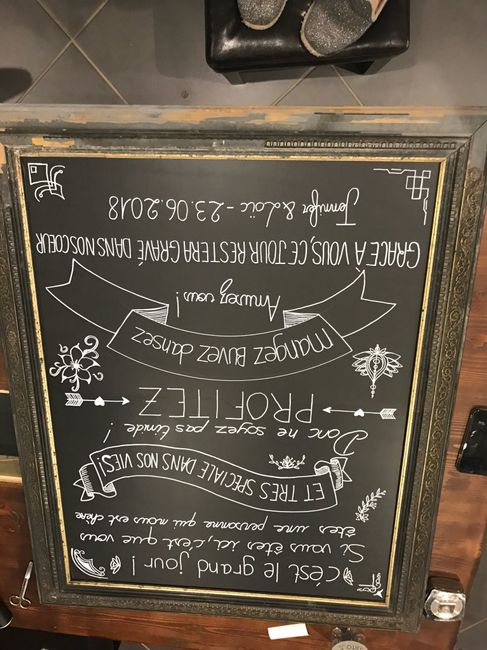 c'est le grand jour !
Si vous êtes ici, c'est que vous
êtes une personne qui nous est chère
ET TRES SPECIALE DANS NOS VIES!
Donc ne soyez pas timide !
PROFITEZ
mangez Buvez dansez
Amusez vous !
GRACE À VOUS, CE JOUR RESTERA GRAVÉ DANS NOS COEUR
Jennifer & Loïc - 23.06.2018